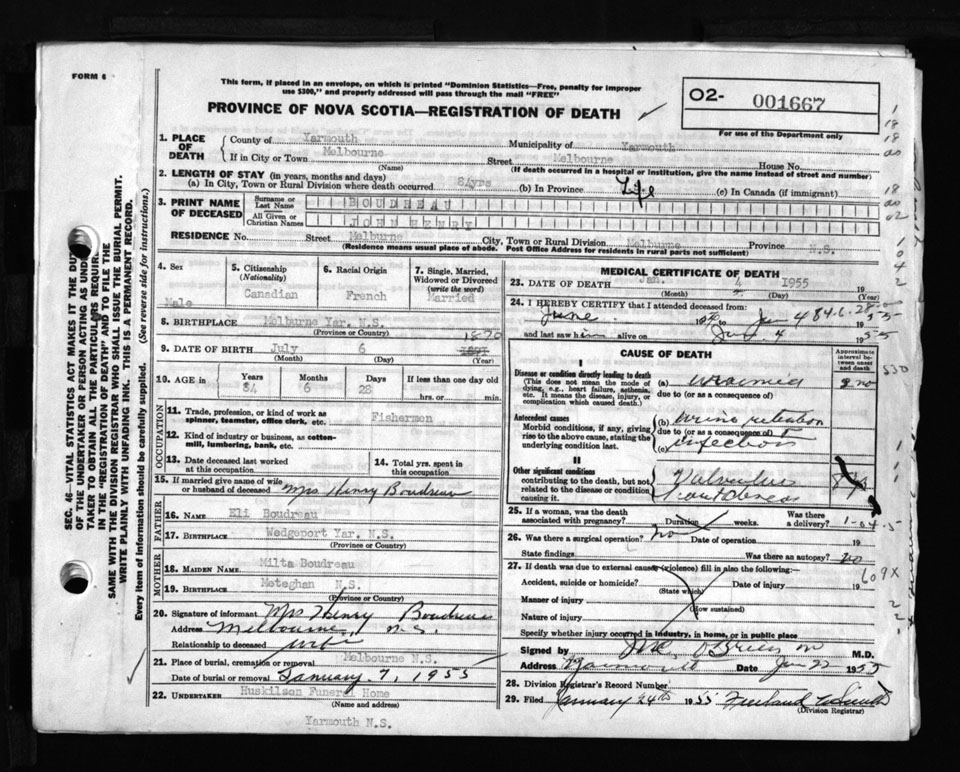 FORM 6
This form, if placed in an envelope, on which is printed "Dominion Statistics—Free, penalty for improper
use $300," and properly addressed will pass through the mail "FREE"
PROVINCE OF NOVA SCOTIA—REGISTRATION OF DEATH
O2- 001667
For use of the Department only
SEC. 46—VITAL STATISTICS ACT MAKES IT THE DUTY
OF THE UNDERTAKER OR PERSON ACTING AS UNDER
TAKER TO OBTAIN ALL THE PARTICULARS REQUIR
IN THE "REGISTRATION OF DEATH" AND TO FILE THE
SAME WITH THE DIVISION REGISTRAR WHO SHALL ISSUE THE BURIAL PERMIT.
WRITE PLAINLY WITH UNFADING INK. THIS IS A PERMANENT RECORD.
Every item of information should be carefully supplied. (See reverse side for instructions.)
1. PLACE OF DEATH
County of Yarmouth Municipality of Yarmouth
If in City or Town Melbourne Street Melbourne House No.
(Name) (If death occurred in a hospital or institution, give the name instead of street and number)
2. LENGTH OF STAY (in years, months and days)
(a) In City, Town or Rural Division where death occurred 84yrs (b) In Province Life (c) In Canada (if immigrant)
3. PRINT NAME OF DECEASED
Surname or Last Name BOUDREAU
All Given or Christian Names JOHN HENRY
RESIDENCE No. Street Melburne City, Town or Rural Division Melburne Province N.S.
(Residence means usual place of abode. Post Office Address for residents in rural parts not sufficient)
4. Sex
Male
5. Citizenship (Nationality)
Canadian
6. Racial Origin
French
7. Single, Married, Widowed or Divorced (write the word)
Married
8. BIRTHPLACE Melburne Yar. N.S.
(Province or Country)
1870
9. DATE OF BIRTH July 6
(Month) (Day) (Year)
10. AGE in Years Months Days If less than one day old
84 6 28 hrs. or min.
OCCUPATION
11. Trade, profession, or kind of work as spinner, teamster, office clerk, etc. Fishermon
12. Kind of industry or business, as cotton-mill, lumbering, bank, etc.
13. Date deceased last worked at this occupation
14. Total yrs. spent in this occupation
15. If married give name of wife or husband of deceased Mrs Henry Boudreau
FATHER
16. NAME Eli Boudreau
17. BIRTHPLACE Wedgeport Yar. N.S.
(Province or Country)
MOTHER
18. MAIDEN NAME Milta Boudreau
19. BIRTHPLACE Meteghan N.S.
(Province or Country)
20. Signature of informant Mrs Henry Boudreau
Address Melbourne, N.S.
Relationship to deceased wife
21. Place of burial, cremation or removal Melbourne N.S.
Date of burial or removal January 7, 1955
22. UNDERTAKER Huskilson Funeral Home
(Name and address)
Yarmouth N.S.
MEDICAL CERTIFICATE OF DEATH
23. DATE OF DEATH Jan. 4 1955
(Month) (Day) (Year)
24. I HEREBY CERTIFY that I attended deceased from:
June
and last saw him alive on Jan 4 1955
CAUSE OF DEATH
Approximate interval between onset and death
I
Disease or condition directly leading to death
(This does not mean the mode of dying, e.g., heart failure, asthenia, etc. It means the disease, injury, or complication which caused death.)
(a) Uraemia
due to (or as a consequence of)
Antecedent causes
Morbid conditions, if any, giving rise to the above cause, stating the underlying condition last.
(b) urine retention
due to (or as a consequence of)
(c) infection
II
Other significant conditions
contributing to the death, but not related to the disease or condition causing it.
Valvular
25. If a woman, was the death associated with pregnancy? Duration weeks. Was there a delivery?
26. Was there a surgical operation? no Date of operation 19
State findings Was there an autopsy? no
27. If death was due to external causes (violence) fill in also the following:—
Accident, suicide or homicide? Date of injury 19
(State which)
Manner of injury
(How sustained)
Nature of injury
Specify whether injury occurred in industry, in home, or in public place
Signed by O'Brien M.D.
Address Yarmouth Date Jan 22 1955
28. Division Registrar's Record Number
29. Filed January 24th 1955
(Division Registrar)